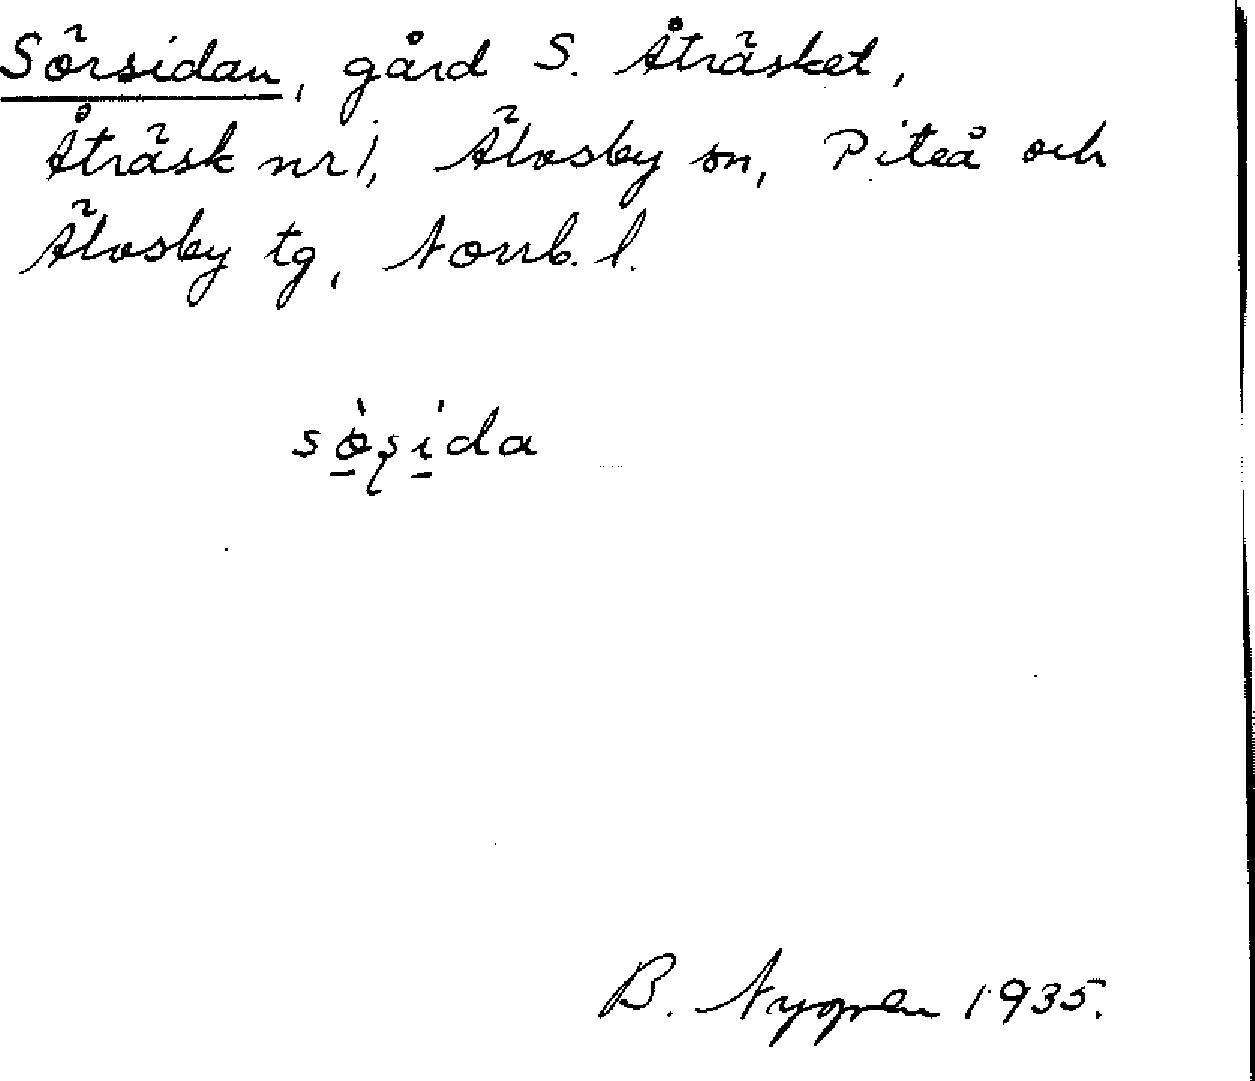 Sörsidan, gård S. Åträsket,
Åträsk nr 1, Älvsby sn, Piteå och
Älvsby tg, Norrb. l.
sø̀ʂída
B. Nygren 1935.